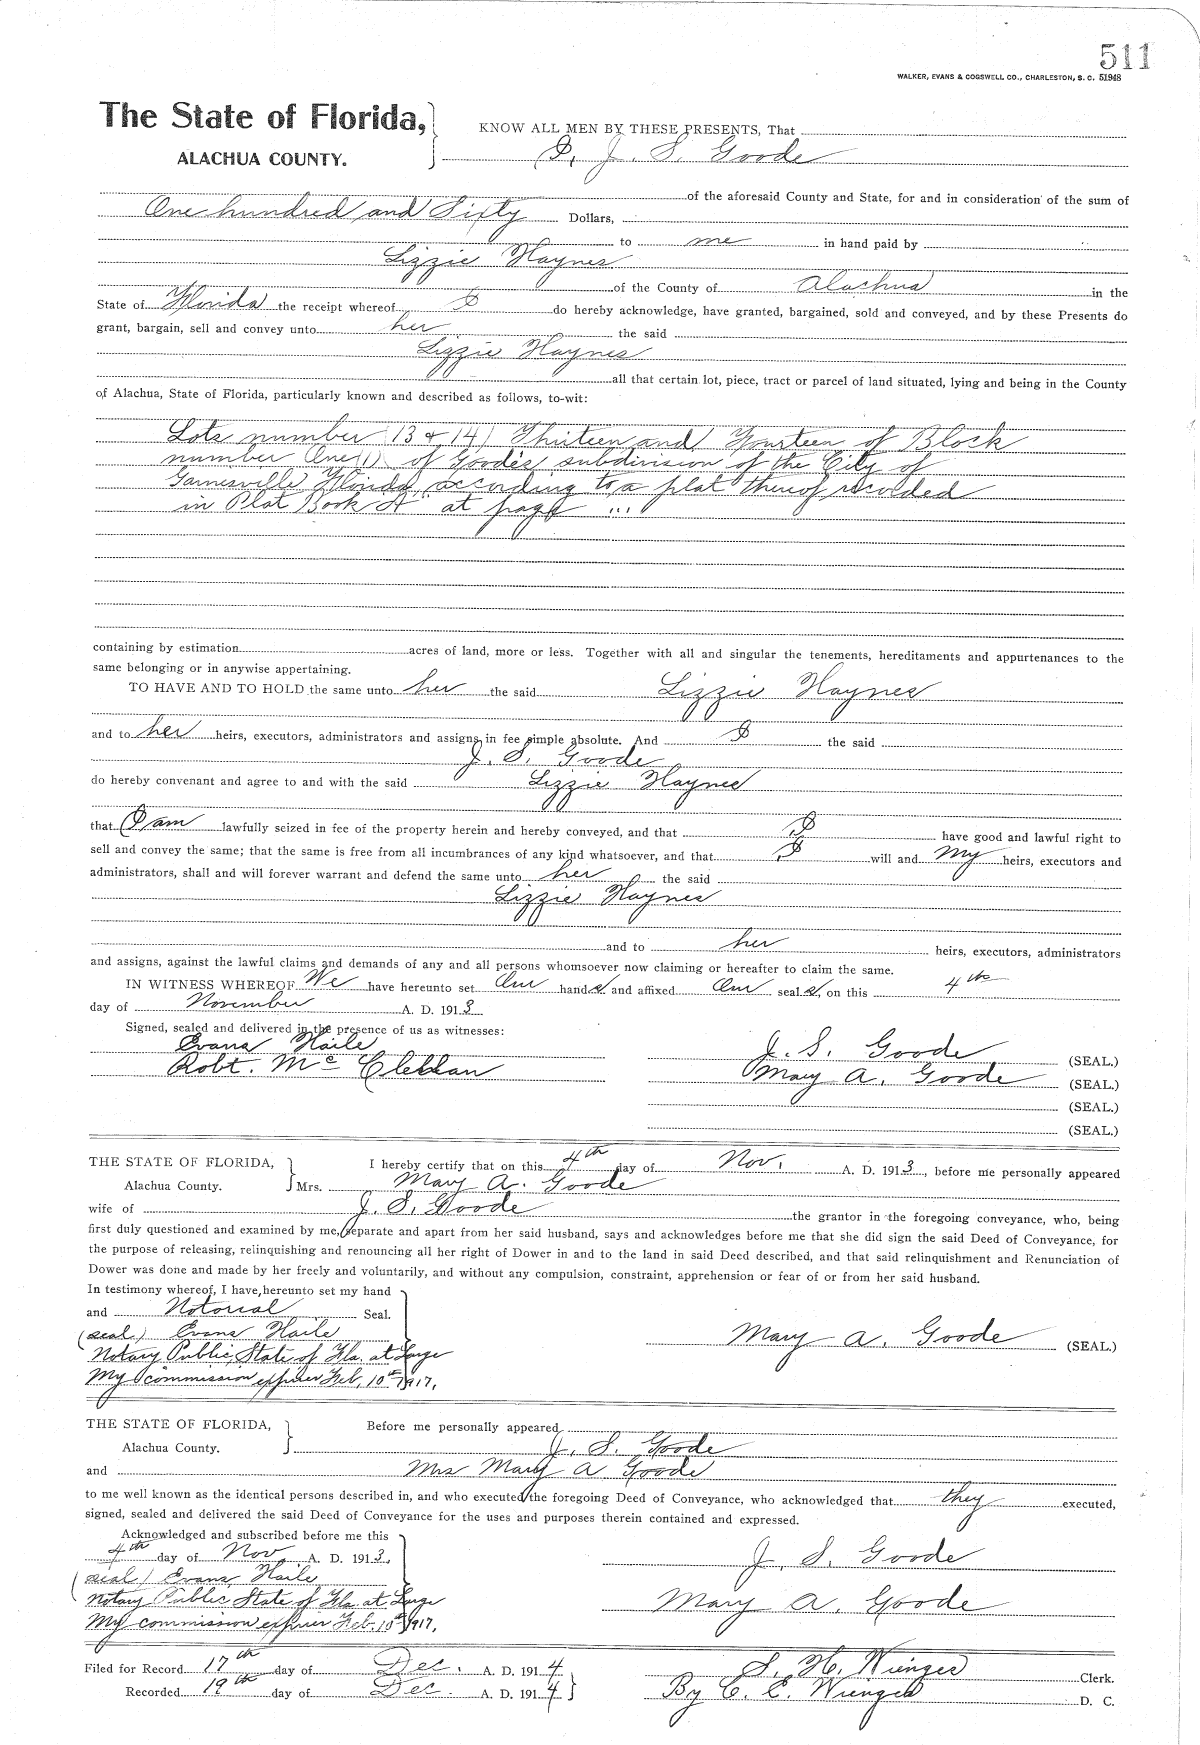 511
WALKER, EVANS & COGSWELL CO., CHARLESTON, S. C. 51948
The State of Florida,
ALACHUA COUNTY.
KNOW ALL MEN BY THESE PRESENTS, That
I, J. S. Goode
of the aforesaid County and State, for and in consideration of the sum of
One hundred and Sixty Dollars,
to me in hand paid by
Lizzie Haynes
of the County of Alachua in the
State of Florida the receipt whereof I do hereby acknowledge, have granted, bargained, sold and conveyed, and by these Presents do
grant, bargain, sell and convey unto her the said
Lizzie Haynes
all that certain lot, piece, tract or parcel of land situated, lying and being in the County
of Alachua, State of Florida, particularly known and described as follows, to-wit:
Lots number (13 & 14) Thirteen and Fourteen of Block
number One (1) of Goode's subdivision of the City of
Gainesville Florida, according to a plat thereof recorded
in Plat Book "A" at page ...
containing by estimation acres of land, more or less. Together with all and singular the tenements, hereditaments and appurtenances to the
same belonging or in anywise appertaining.
TO HAVE AND TO HOLD the same unto her the said Lizzie Haynes
and to her heirs, executors, administrators and assigns in fee simple absolute. And I the said
J. S. Goode
do hereby convenant and agree to and with the said Lizzie Haynes
that I am lawfully seized in fee of the property herein and hereby conveyed, and that I have good and lawful right to
sell and convey the same; that the same is free from all incumbrances of any kind whatsoever, and that I will and my heirs, executors and
administrators, shall and will forever warrant and defend the same unto her the said
Lizzie Haynes
and to her heirs, executors, administrators
and assigns, against the lawful claims and demands of any and all persons whomsoever now claiming or hereafter to claim the same.
IN WITNESS WHEREOF We have hereunto set Our hands and affixed Our seals, on this 4th
day of November A. D. 1913
Signed, sealed and delivered in the presence of us as witnesses:
Evans Haile
Robt. McClellan
J. S. Goode (SEAL.)
Mary A. Goode (SEAL.)
(SEAL.)
(SEAL.)
THE STATE OF FLORIDA,
Alachua County.
I hereby certify that on this 4th day of Nov. A. D. 1913, before me personally appeared
Mrs. Mary A. Goode
wife of J. S. Goode the grantor in the foregoing conveyance, who, being
first duly questioned and examined by me, separate and apart from her said husband, says and acknowledges before me that she did sign the said Deed of Conveyance, for
the purpose of releasing, relinquishing and renouncing all her right of Dower in and to the land in said Deed described, and that said relinquishment and Renunciation of
Dower was done and made by her freely and voluntarily, and without any compulsion, constraint, apprehension or fear of or from her said husband.
In testimony whereof, I have hereunto set my hand
and Notorial Seal.
(seal) Evans Haile
Notary Public, State of Fla. at Large
My commission expires Feb, 10th 1917.
Mary A. Goode (SEAL.)
THE STATE OF FLORIDA,
Alachua County.
Before me personally appeared
J. S. Goode
and Mrs Mary A Goode
to me well known as the identical persons described in, and who executed the foregoing Deed of Conveyance, who acknowledged that they executed,
signed, sealed and delivered the said Deed of Conveyance for the uses and purposes therein contained and expressed.
Acknowledged and subscribed before me this
4th day of Nov, A. D. 1913,
(seal) Evans Haile
Notary Public State of Fla. at Large
My commission expires Feb. 10th 1917.
J. S. Goode
Mary A. Goode
Filed for Record 17th day of Dec. A. D. 1914
Recorded 19th day of Dec. A. D. 1914
S. H. Wienges Clerk.
By C. E. Wienges D. C.